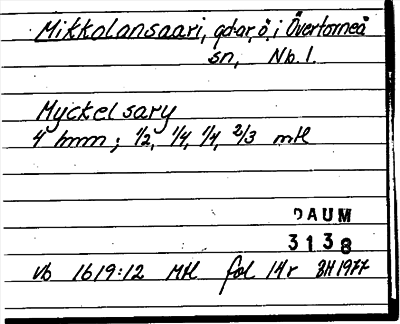 Mikkolansaari, gdar, ö, i Övertorneå
sn, Nb. l.
Myckel sary
4 hmn; 1/2, 1/4, 1/4, 2/3 mtl
DAUM
3138
Vb 1619:12 Mtl fol 14r BH 1977